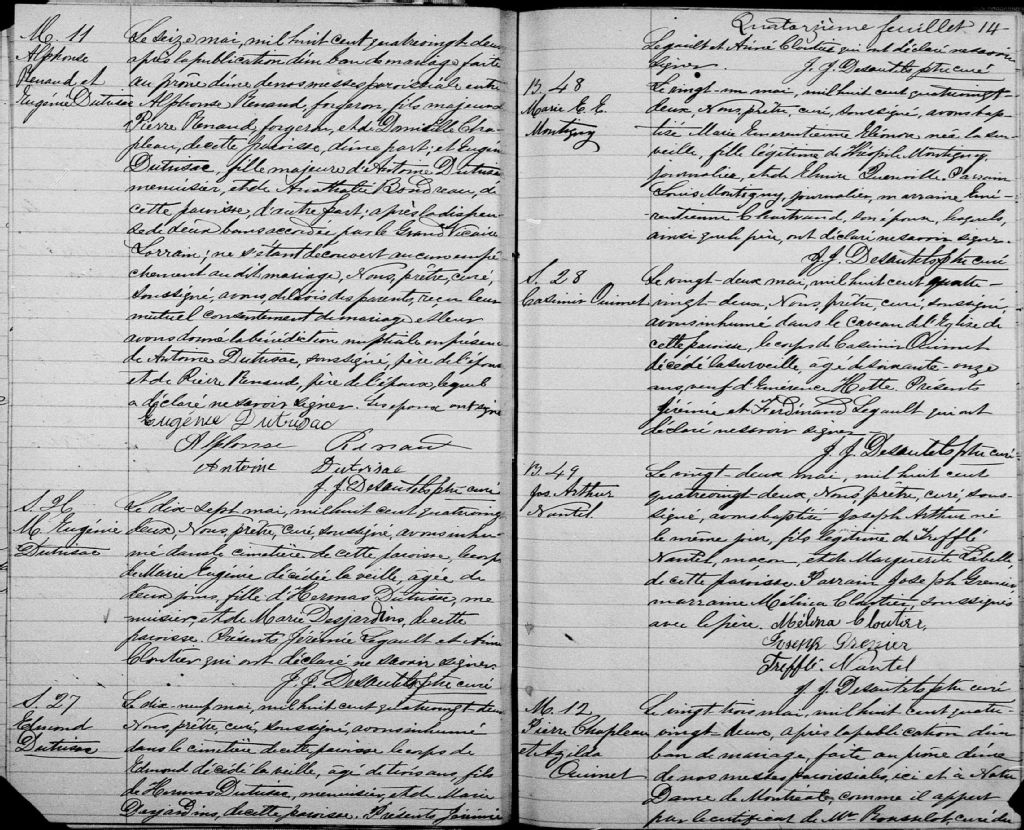 M. 11
Alphonse
Renaud et
Eugénie Dutrisac
Le seize mai, mil huit cent quatrevingt deux
après la publication d'un ban de mariage faite
au prône d'une de nos messes paroissiale entre
Alphonse Renaud, forgeron, fils majeur de
Pierre Renaud, forgeron, et de Domitille Cha-
pleau, de cette paroisse, d'une part; et Eugénie
Dutrisac, fille majeure d'Antoine Dutrisac
menuisier, et de Anathalie Boudreau, de
cette paroisse, d'autre part; après la dispen-
se de deux bans accordée par le Grand Vicaire
Lorrain; ne s'étant découvert aucun empê-
chement au dit mariage, Nous, prêtre, curé,
soussigné, avons du avis des parents, reçu leur
mutuel consentement de mariage et leur
avons donné la bénédiction nuptiale en présence
de Antoine Dutrisac, soussigné, père de l'épouse
et de Pierre Renaud, père de l'époux, lequel
a déclaré ne savoir signer. Les époux ont signé
Eugénie Dutrisac
Alphonse Renaud
Antoine Dutrisac
J. J. Desautels ptre curé
S. 26
M. Eugénie
Dutrisac
Le dix-sept mai, mil huit cent quatrevingt
deux, Nous, prêtre, curé, soussigné, avons inhu-
mé dans le cimetière de cette paroisse, le corps
de Marie Eugénie décédée la veille, âgée de
deux jours, fille d'Hermas Dutrisac, me-
nuisier, et de Marie Desjardins, de cette
paroisse. Présents Jérémie Legault et Aimé
Cloutier qui ont déclaré ne savoir signer.
J. J. Desautels ptre curé
S. 27
Edmond
Dutrisac
Le dix-neuf mai, mil huit cent quatrevingt-deux
Nous, prêtre, curé, soussigné, avons inhumé
dans le cimetière de cette paroisse le corps de
Edmond décédé la veille, âgé de trois ans, fils
de Hermas Dutrisac, menuisier, et de Marie
Desjardins, de cette paroisse. Présents Jérémie
Quatorzième feuillet 14
Legault et Aimé Cloutier qui ont déclaré ne savoir
signer. J. J. Desautels ptre curé
B. 48
Marie E. E.
Montigny
Le vingt-un mai, mil huit cent quatrevingt-
deux, Nous prêtre, curé, soussigné, avons bap-
tisé Marie Emerentienne Eléonore née la sur-
veille, fille légitime de Théophile Montigny,
journalier, et de Elmire Quenville. Parrain
Louis Montigny, journalier, marraine Emé-
rentienne Chartrand, son épouse, lesquels,
ainsi que le père, ont déclaré ne savoir signer.
J. J. Desautels ptre curé
S. 28
Casimir Ouimet
Le vingt-deux mai, mil huit cent quatre-
vingt-deux, Nous prêtre, curé, soussigné,
avons inhumé dans le caveau de l'Eglise de
cette paroisse, le corps de Casimir Ouimet
décédé la surveille, âgé de soixante-onze
ans, veuf d'Emérence Hotte. Présents
Jérémie et Ferdinand Legault qui ont
déclaré ne savoir signer.
J. J. Desautels ptre curé
B. 49
Jos. Arthur
Nantel
Le vingt deux mai, mil huit cent
quatrevingt-deux, Nous, prêtre, curé, sous-
signé, avons baptisé Joseph Arthur né
le même jour, fils légitime de Trefflé
Nantel, maçon, et de Marguerite Labelle
de cette paroisse. Parrain Joseph Grenier
marraine Mélina Cloutier, soussignés
avec le père. Mélina Cloutier
Joseph Grenier
Trefflé Nantel
J. J. Desautels ptre curé
M. 12
Pierre Chapleau
et Azilda
Ouimet
Le vingt trois mai, mil huit cent quatre-
vingt-deux, après la publication d'un
ban de mariage, faite au prône d'une
de nos messes paroissiales, ici et à Notre
Dame de Montréal, comme il appert
par le certificat de Mr Rousselot, curé du